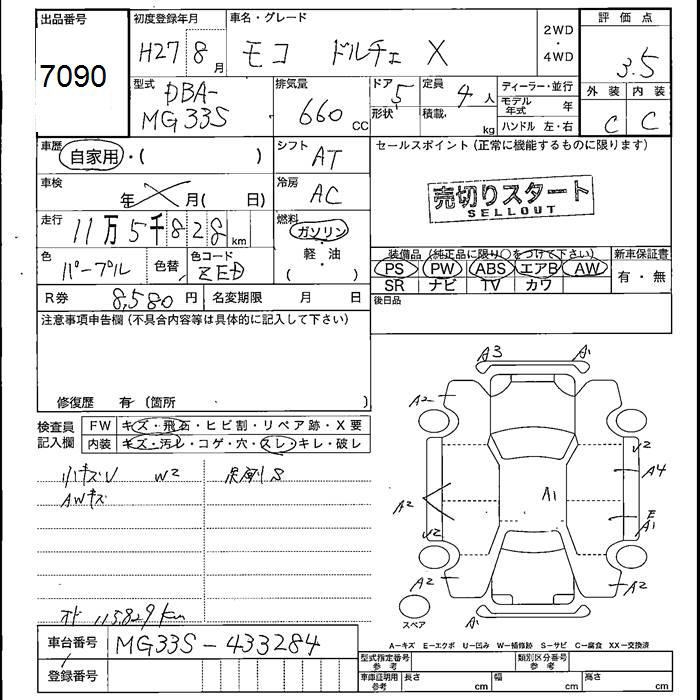 出品番号
7090
初度登録年月
H27 8月
車名・グレード
モコ ドルチェ X
2WD
・
4WD
評価点
3.5
外装 内装
C C
型式
DBA-
MG33S
排気量
660 CC
ドア
5
形状
定員
4 人
積載
kg
ディーラー・並行
モデル年式 年
ハンドル 左・右
車歴
自家用・( )
シフト
AT
セールスポイント (正常に機能するものに限ります)
売切りスタート
SELLOUT
車検
年 月( 日)
冷房
AC
走行
11万5千828km
燃料
ガソリン
軽・油
( )
色
パープル
色替
色コード
ZED
装備品 (純正品に限り○をつけて下さい)
PS PW ABS エアB AW
SR ナビ TV カワ
新車保証書
有・無
R券 8,580円
名変期限 月 日
後日品
注意事項申告欄 (不具合内容等は具体的に記入して下さい)
修復歴 有 (箇所 )
検査員
記入欄
FW キズ・飛石・ヒビ割・リペア跡・X要
内装 キズ・汚レ・コゲ・穴・スレ・キレ・破レ
小キズU W2
AWキズ
オド 115,829km
A3 A1
A2
A2
A2
A1
A1
A2
A4
E
A1
A2
スペア
車台番号 MG33S-433284
登録番号
A-キズ E-エクボ U-凹み W-補修跡 S-サビ C-腐食 XX-交換済
型式指定番号
参考
類別区分番号
参考
車庫証明用
参考
長さ cm 幅 cm 高さ cm